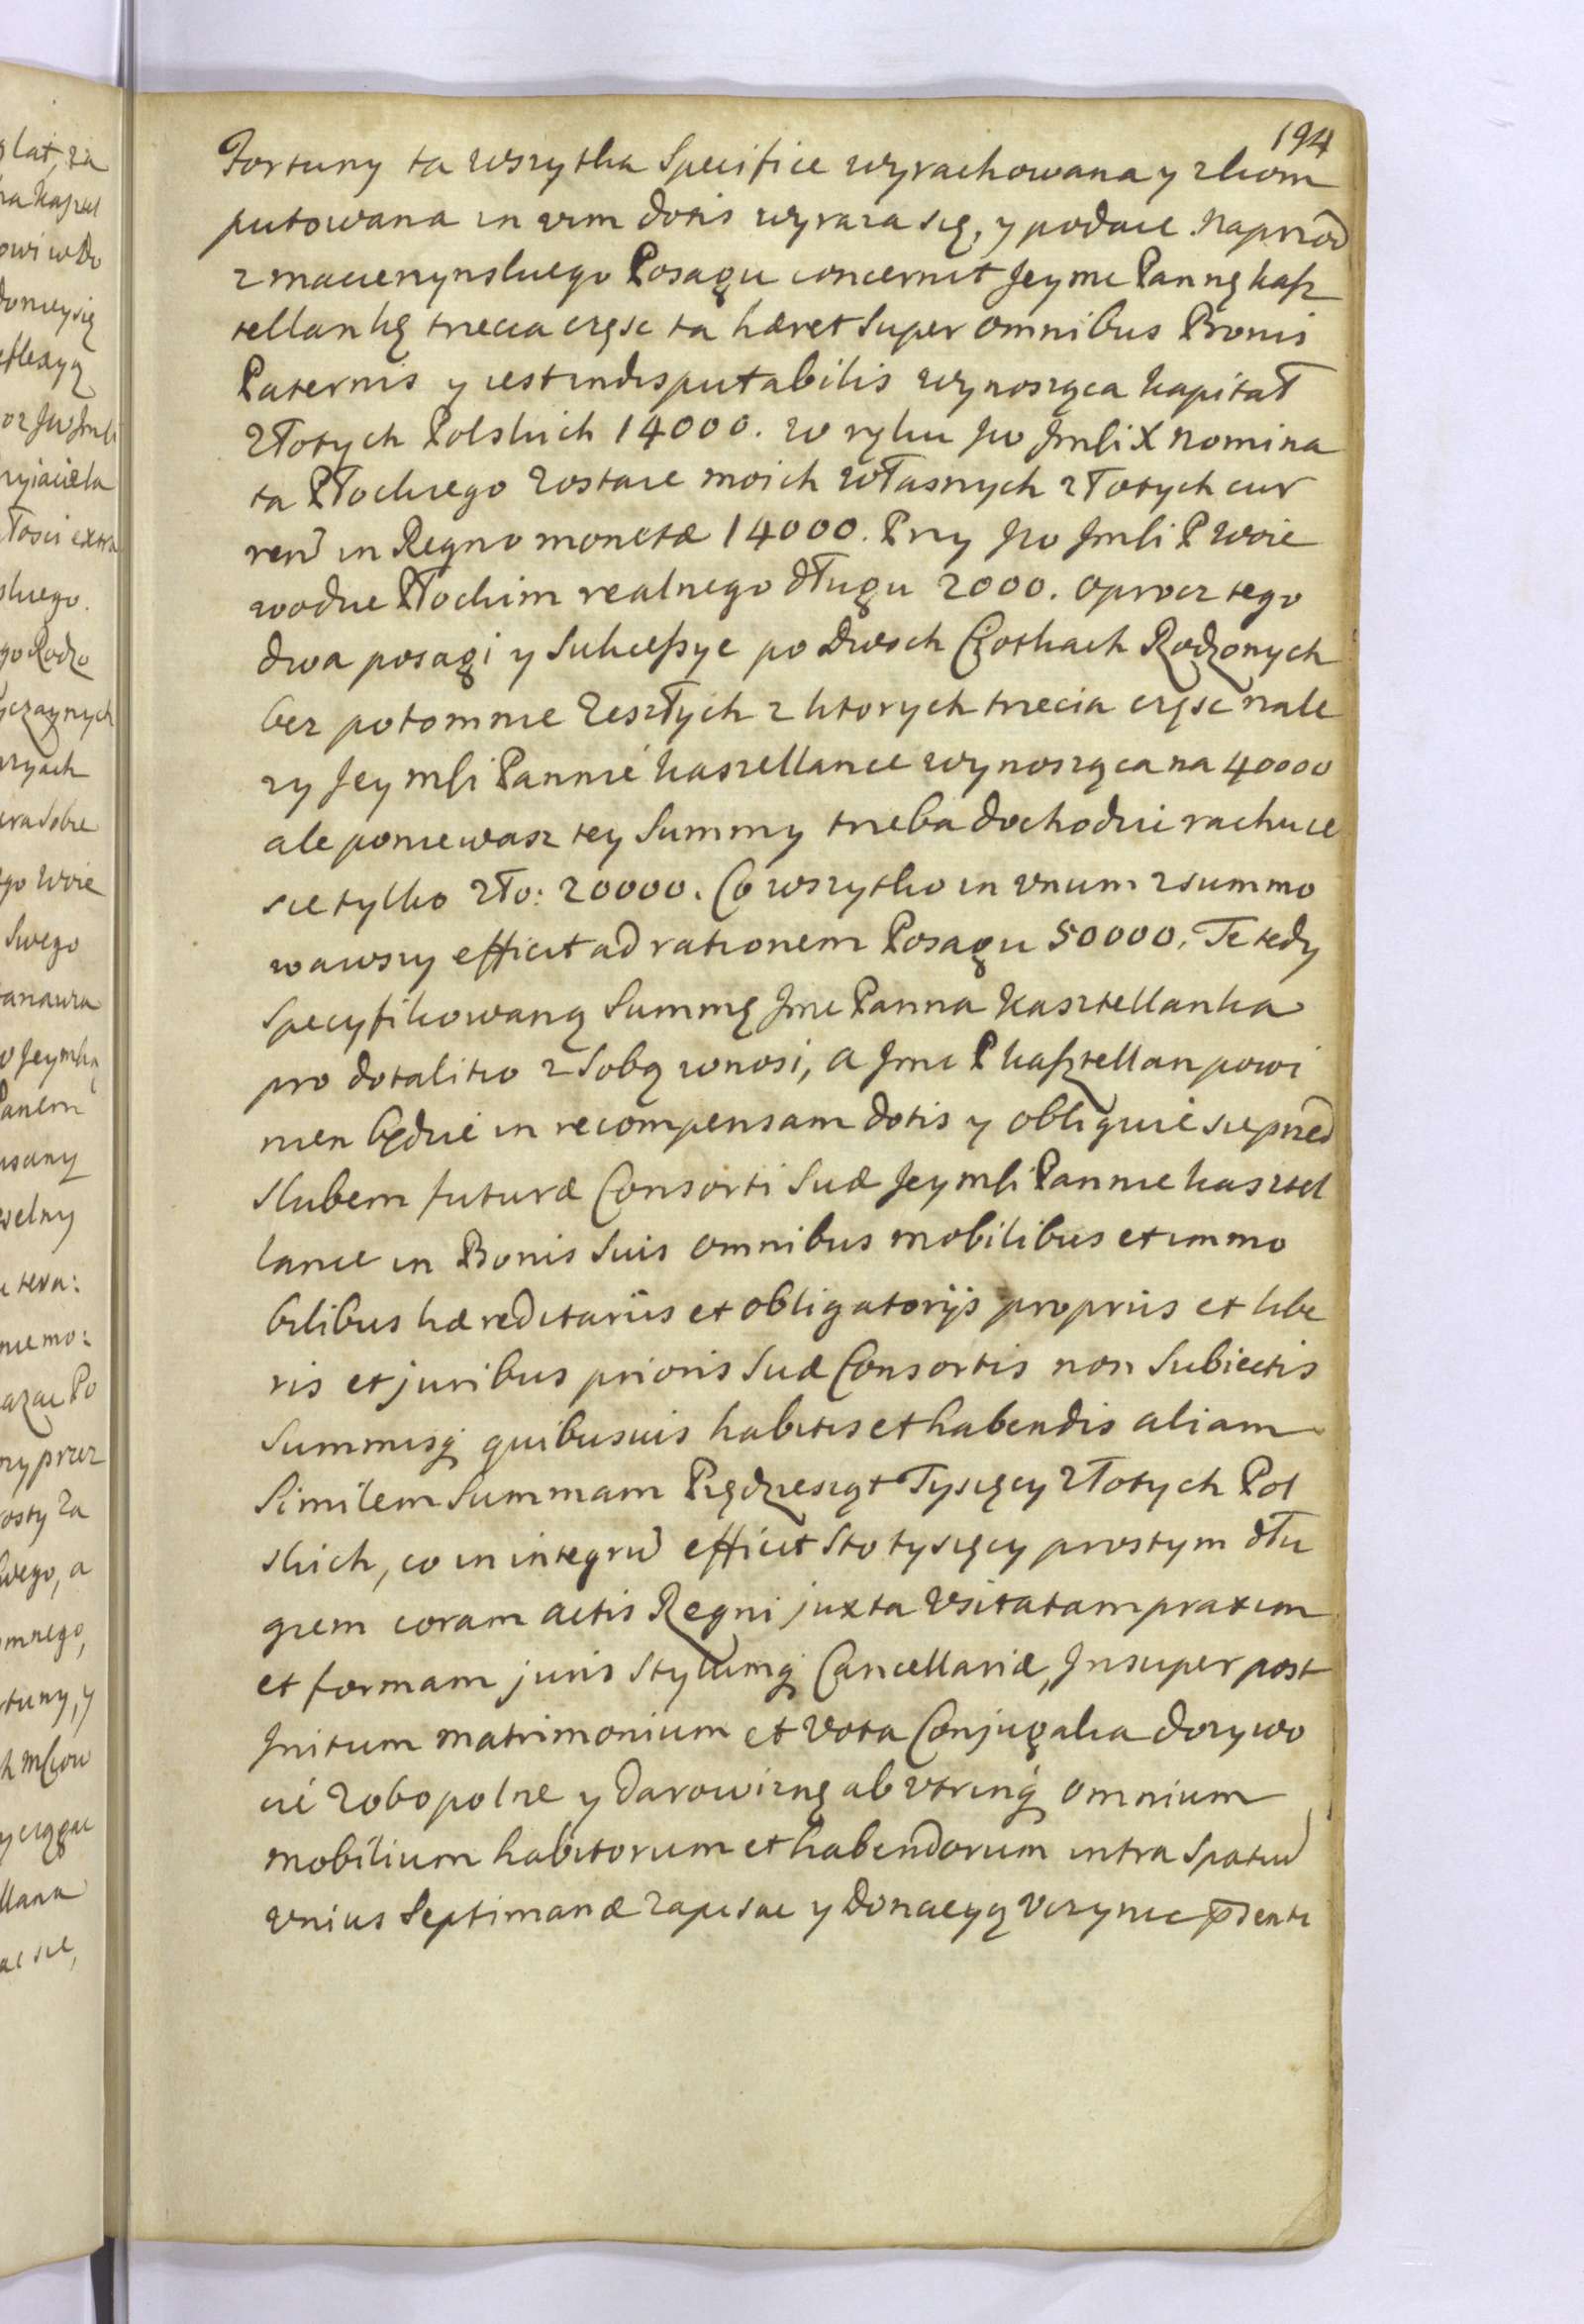 194
Fortuny ta wszytka Specifice wyrachowana y zkom
putowana in vim dotis wyraza się, y podaie. Naprzod
z macierzynskiego Posagu concernit Jeymc Pannę kasz
tellankę trzecia częsc ta hæret Super omnibus Bonis
Paternis y iest indisputabilis wynosząca kapitał
złotych Polskich 14000. w ręku Jw Jmści X Nomina
ta Płockiego zostaie moich własnych złotych cur
ren in Regno monetæ 14000. Przy Jw Jmści P Woie
wodzie Płockim realnego długu 2000. oprocz tego
dwa posagi y Sukcessye po dwoch Ciotkach Rodzonych
bez potomnie Zeszłych z ktorych trzecia częsc nale
zy Jey mści Pannie kasztellance wynosząca na 40000
ale poniewasz tey Summy trzeba dochodzic rachuie
sie tylko zło: 20000. Co wszytko in vnum zsummo
wawszy efficit ad rationem Posagu 50000. Te tedy
specyfikowaną Summę Jmc Panna Kasztellanka
pro dotalitio z Sobą wnosi, a Jmc P kasztellan powi
nien będzie in recompensam dotis y obliguie sie przed
slubem futuræ Consorti Suæ Jey mści Pannie kasztel
lance in Bonis Suis omnibus mobilibus et immo
bilibus hæreditariis et obligatorijs propriis et libe
ris et juribus prioris Suæ Consortis non Subiectis
Summisq quibusuis habitis et habendis aliam
Similem Summam Piędziesząt Tysięcy złotych Pol
skich, co in integru efficit Sto tysięcy prostym dłu
giem coram actis Regni juxta Vsitatam praxim
et formam juris Stylumq Cancellariæ, Insuper post
Initum matrimonium et Vota Conjugalia dozywo
cie Zobopolne y darowiznę ab vtrinq omnium
mobilium habitorum et habendorum intra Spatiu
vnius Septimanæ zapisac y donacyą vczynic
lat, za
owi w Do
doniey się
Swego
Panem
przez